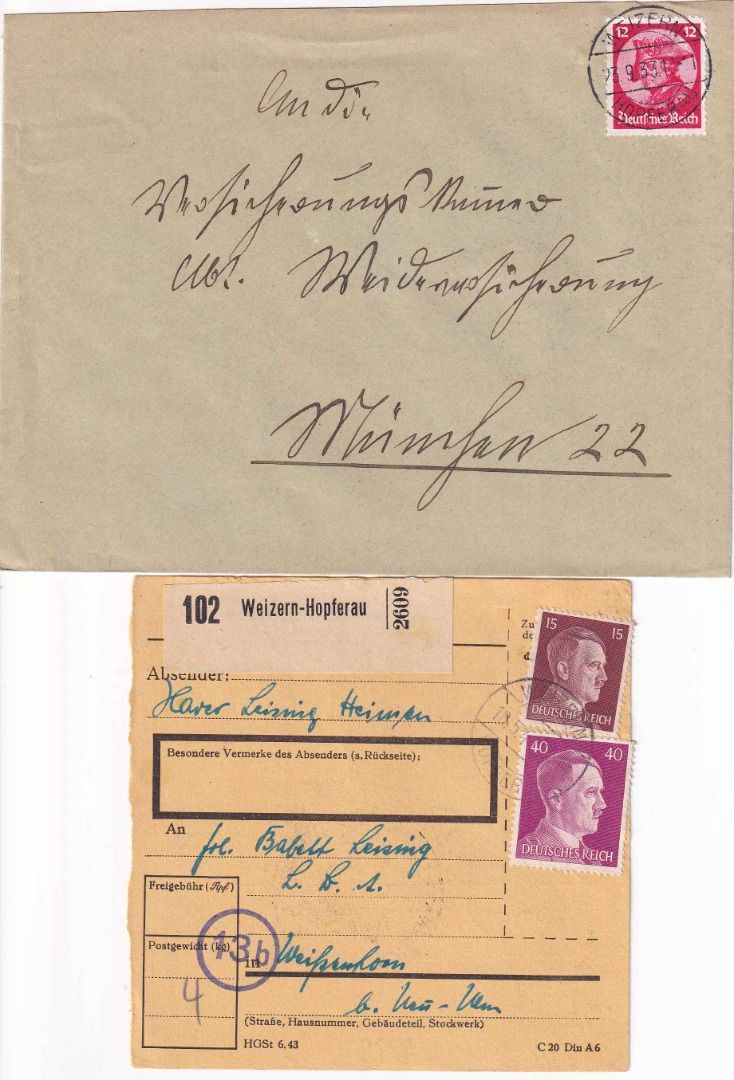 12 12
Deutsches Reich
WEIZERN
23.9.33.
HOPFERAU
An die
Versicherungskammer
Abt. Weiderversicherung
München 22
102 Weizern-Hopferau 2609
Zu
de
d
15 15
DEUTSCHES REICH
40 40
DEUTSCHES REICH
Absender:
Xaver Leising Heimen
Besondere Vermerke des Absenders (s. Rückseite):
An
frl. Babett Leising
L. B. A.
Freigebühr (Rpf)
Postgewicht (kg)
13b
4
in Weißenhorn
b. Neu-Ulm
(Straße, Hausnummer, Gebäudeteil, Stockwerk)
HGSt 6.43
C 20 Din A 6